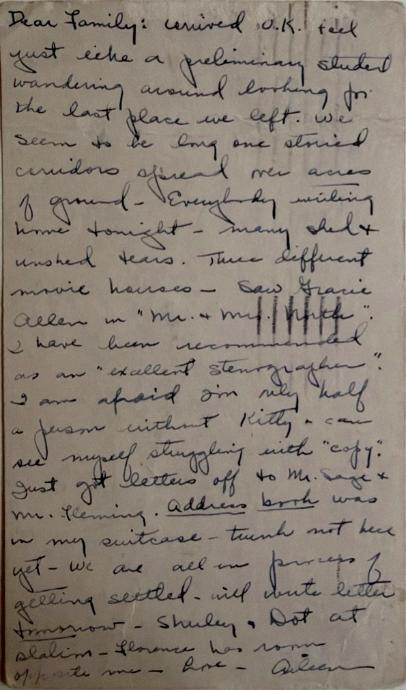 Dear Family: arrived O.K. feel
just like a preliminary student
wandering around looking for
the last place we left. We
seem to be long one storied
corridors spread over acres
of ground - Everybody writing
home tonight - many shed &
unshed tears. Three different
movie houses - Saw Gracie
Allen in "Mr. & Mrs. North".
I have been recommended
as an "excellent stenographer".
I am afraid I'm only half
a person without Kitty & can
see myself struggling with "copy".
Just got letters off to Mr. Sage &
Mr. Fleming. Address book was
in my suitcase - trunk not here
yet - We are all in process of
getting settled - will write letter
tomorrow - Shirley & Dot at
station - Florence has room
opposite me - Love - Aileen